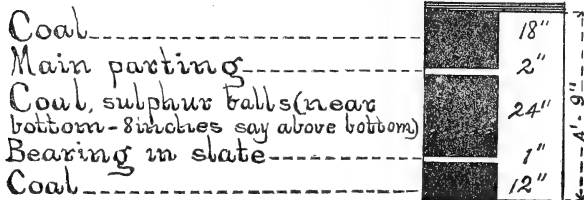 Coal 18"
Main parting 2"
Coal, sulphur balls (near
bottom - 8 inches say above bottom) 24"
Bearing in slate 1"
Coal 12"
4'- 9"